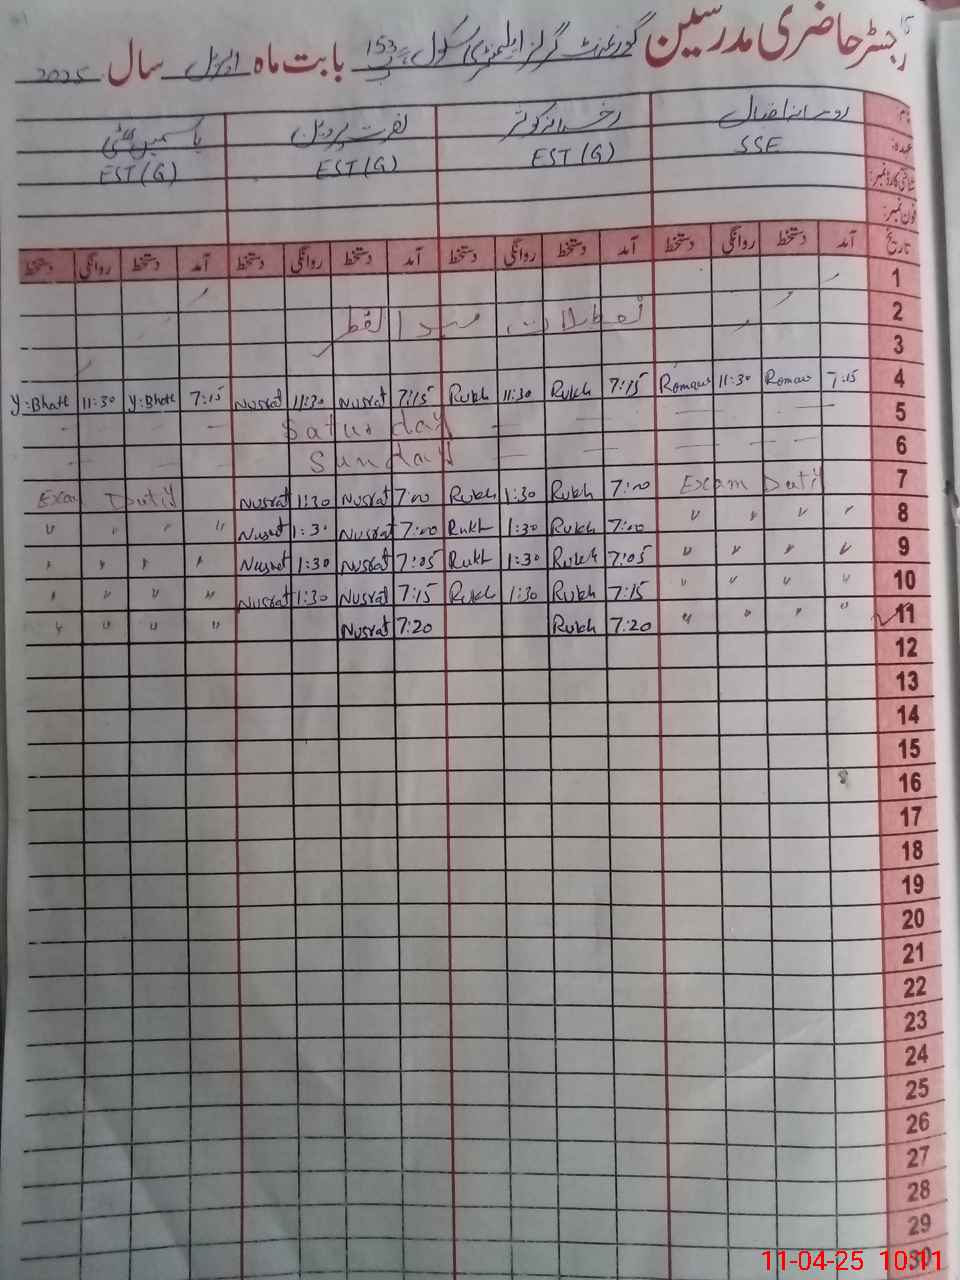 رجسٹر حاضری مدرسین گورنمنٹ گرلز ایلیمنٹری سکول 153 بابت ماہ اپریل سال 2025
نام: رومانہ افضال رخسانہ کوثر نصرت پروین یاسمین بھٹی
عہدہ: SSE EST(G) EST(G) EST(G)
شناختی کارڈ نمبر:
فون نمبر:
تاریخ آمد دستخط روانگی دستخط آمد دستخط روانگی دستخط آمد دستخط روانگی دستخط آمد دستخط روانگی دستخط
1
2 تعطیلات عید الفطر
3
4 7:15 Roman 11:30 Roman 7:15 Rukh 11:30 Rukh 7:15 Nusrat 11:30 Nusrat 7:15 Y:Bhatt 11:30 Y:Bhatt
5 Saturday
6 Sunday
7 Exam Duti 7:00 Rukh 1:30 Rukh 7:00 Nusrat 1:30 Nusrat Exam Dutil
8 " " " " 7:00 Rukh 1:30 Rukh 7:00 Nusrat 1:30 Nusrat " " " "
9 " " " " 7:05 Rukh 1:30 Rukh 7:05 Nusrat 1:30 Nusrat " " " "
10 " " " " 7:15 Rukh 1:30 Rukh 7:15 Nusrat 1:30 Nusrat " " " "
11 " " " " 7:20 Rukh 7:20 Nusrat " " " "
12
13
14
15
16
17
18
19
20
21
22
23
24
25
26
27
28
29
30
11-04-25 10:11